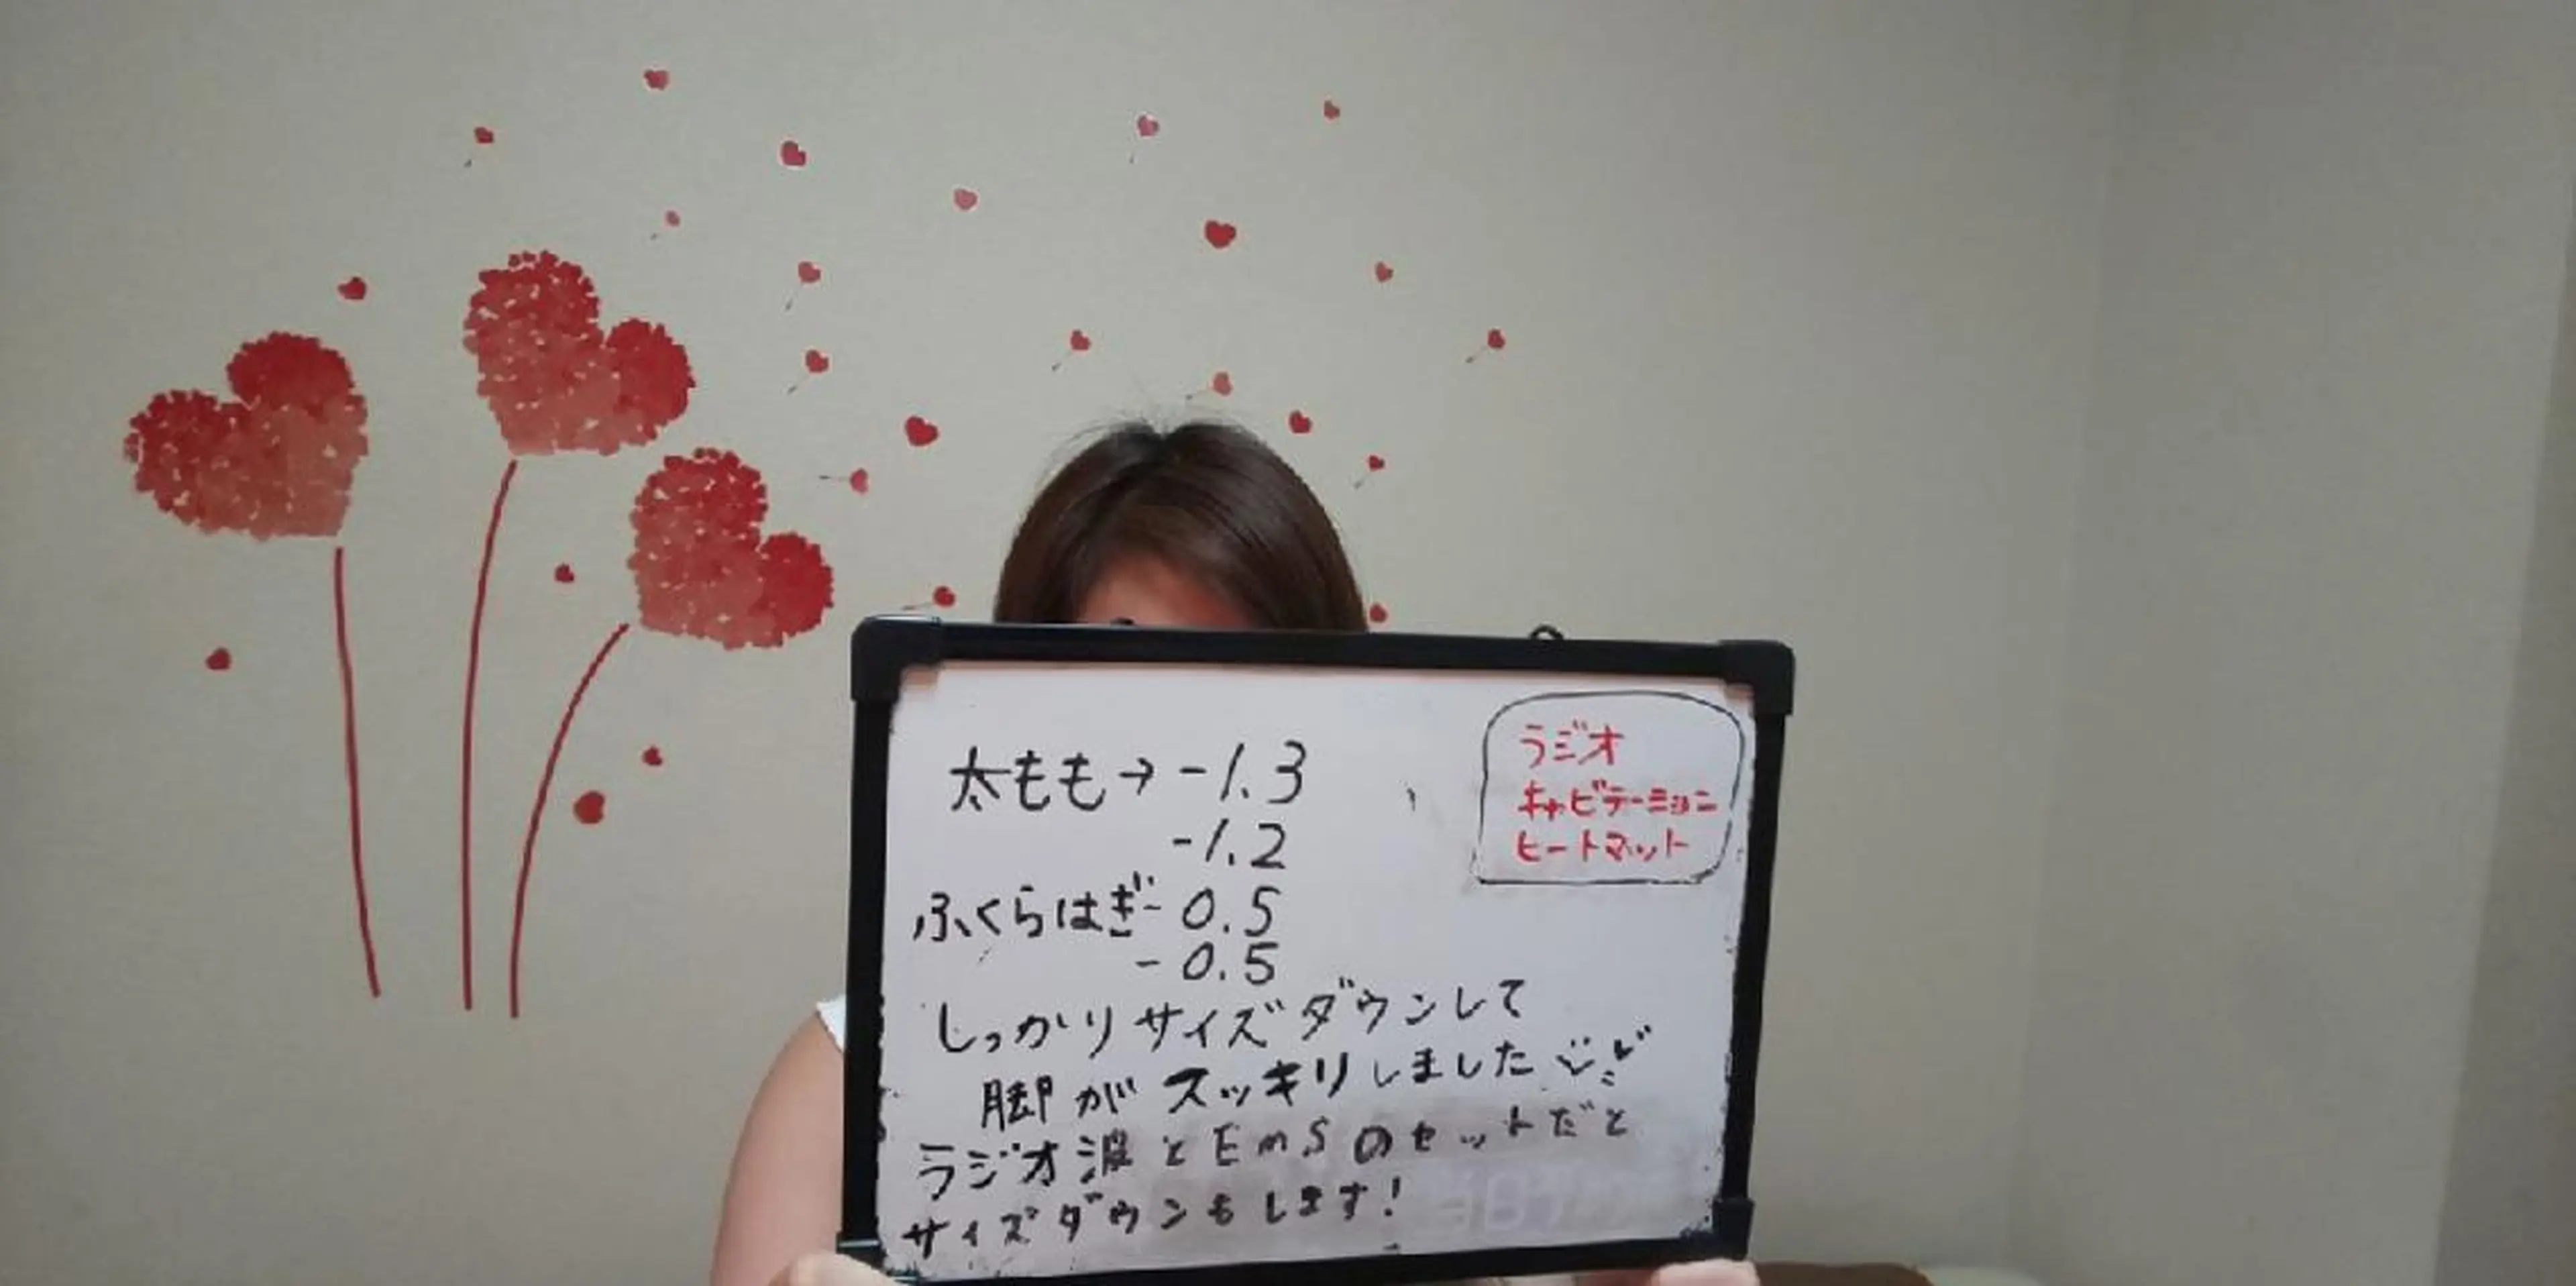 太もも→-1.3
-1.2
ふくらはぎ-0.5
-0.5
しっかりサイズダウンして
脚がスッキリしました
ラジオ波とEmSのセットだと
サイズダウンもします!
ラジオ
キャビテーション
ヒートマット